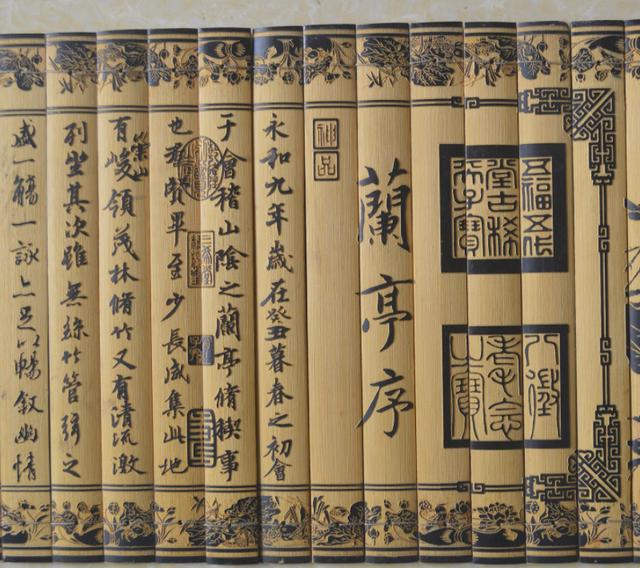 五福五代
堂古稀
天子寶
八徵
耄念
之寶
蘭亭序
神品
永和九年歲在癸丑暮春之初會
于會稽山陰之蘭亭脩稧事
也羣賢畢至少長咸集此地
有崇山峻領茂林脩竹又有清流激
列坐其次雖無絲竹管弦之
盛一觴一詠亦足以暢敘幽情